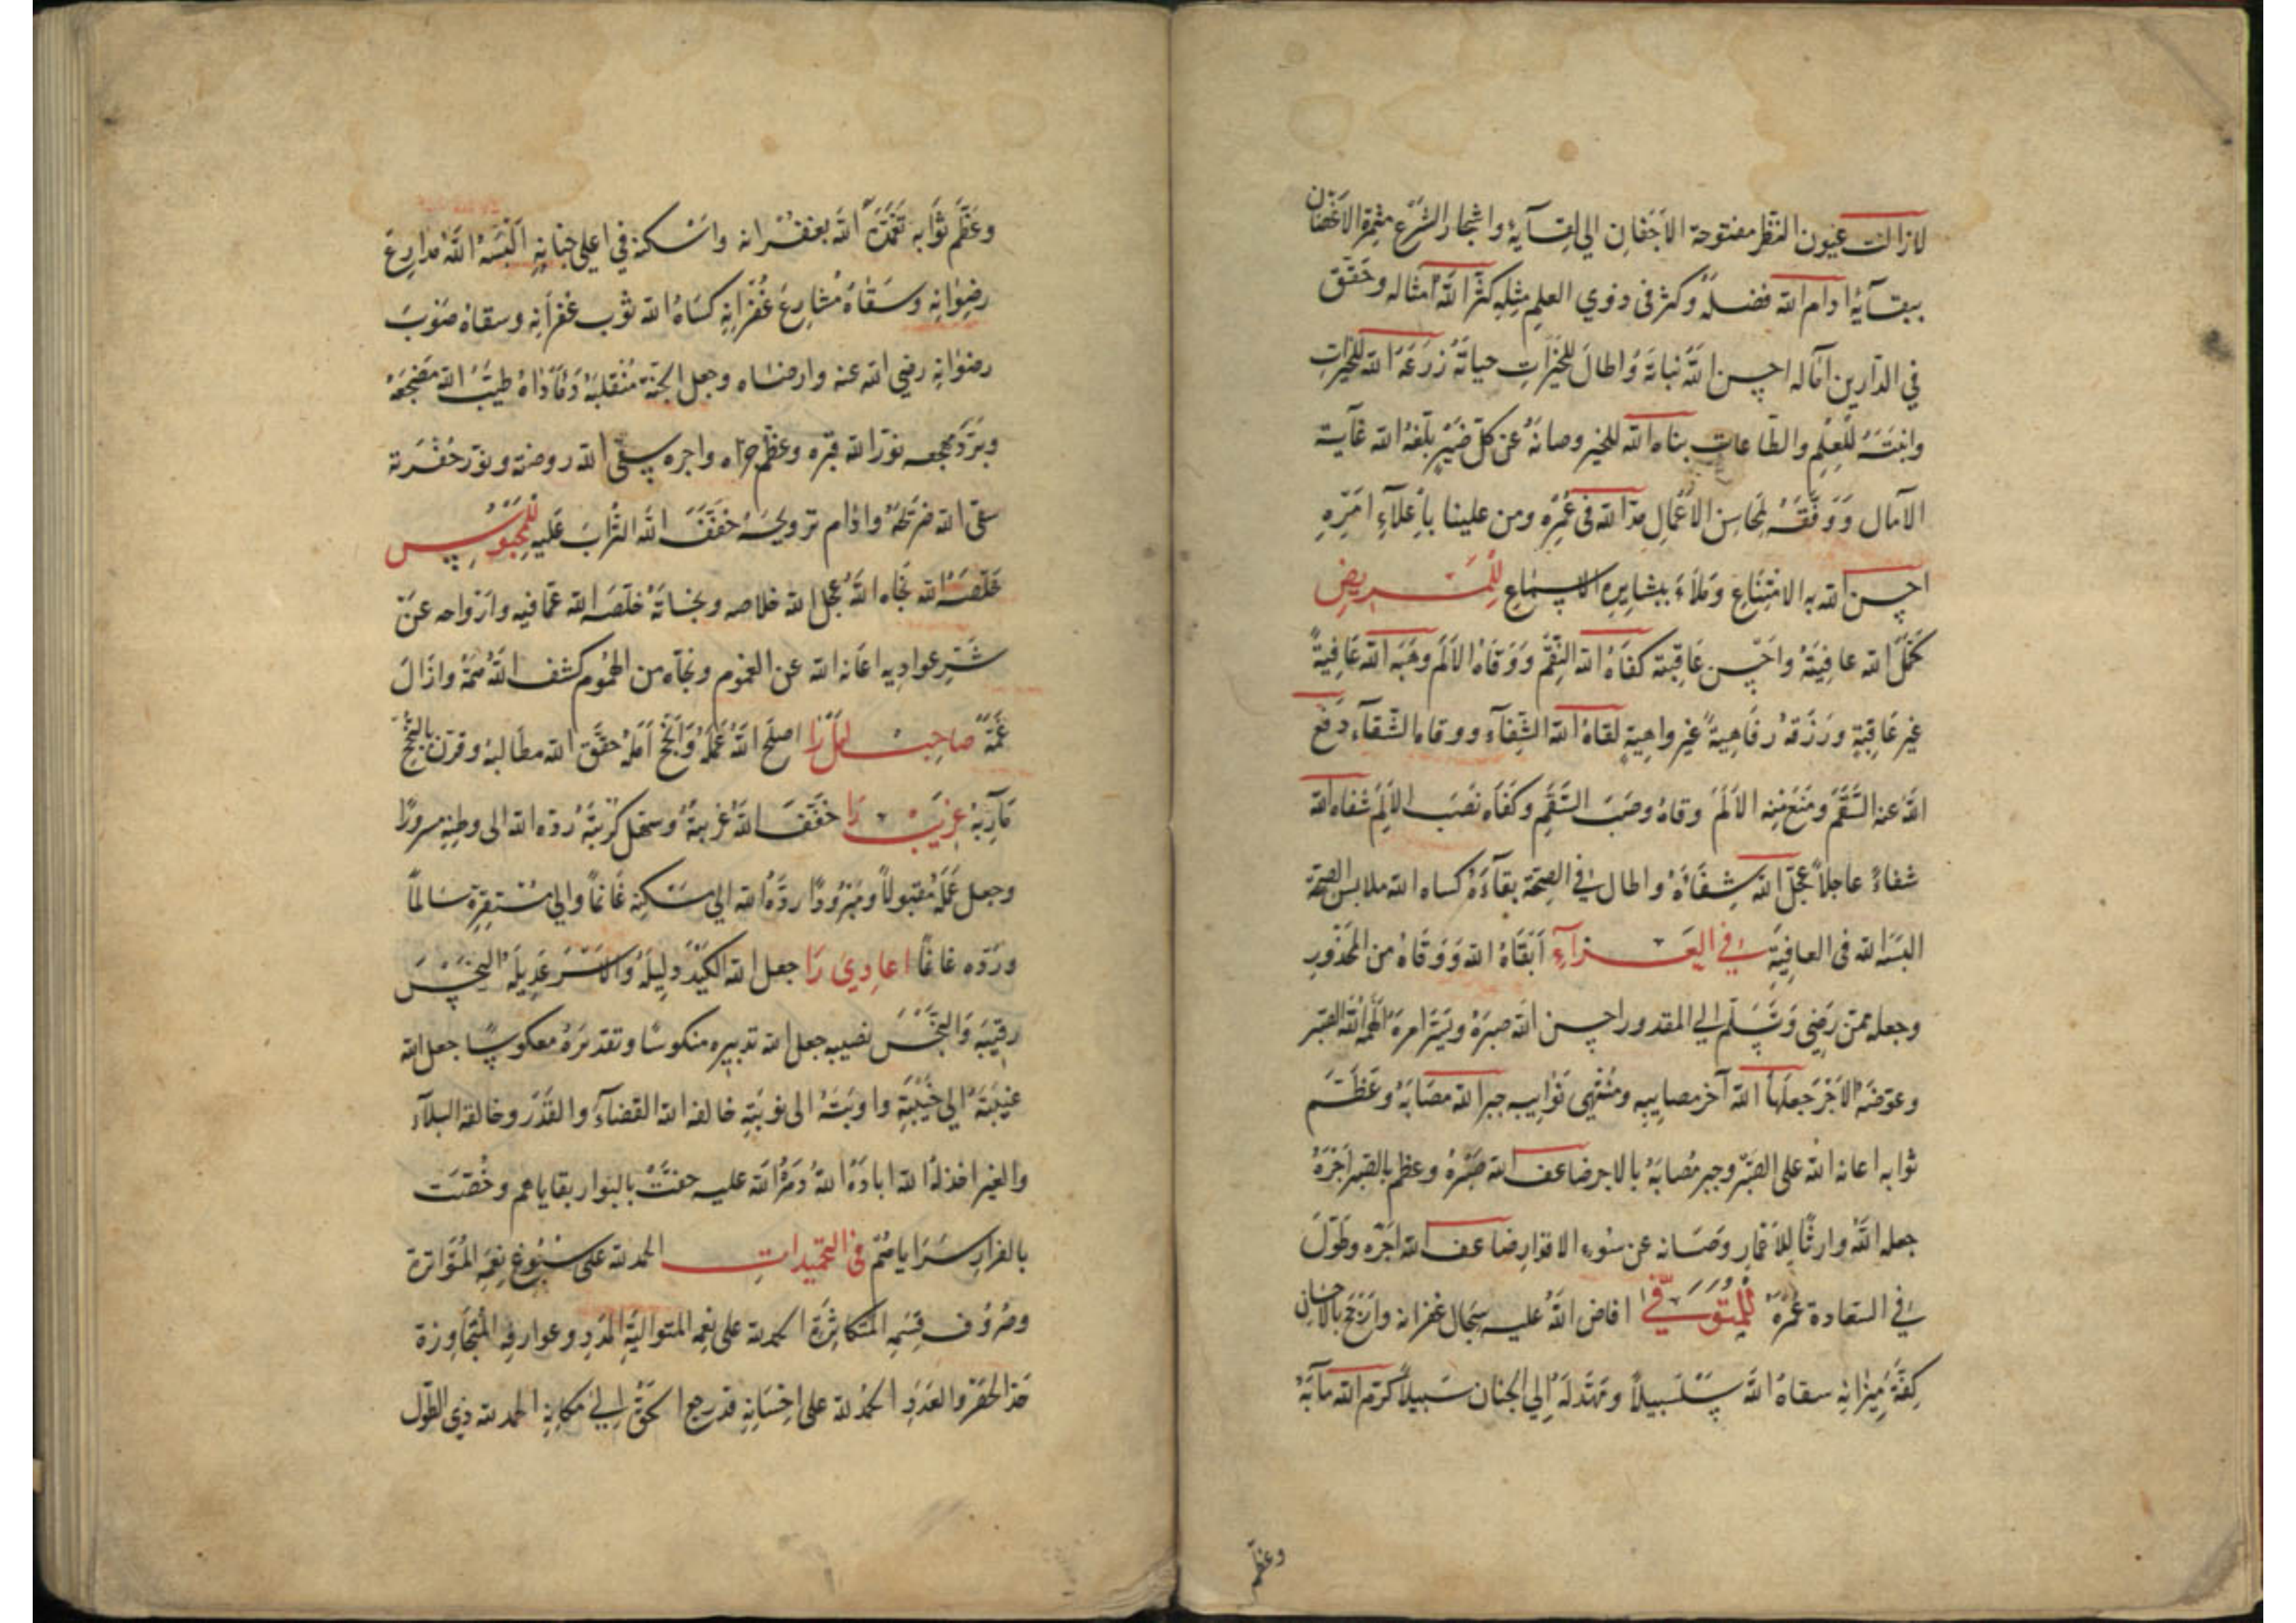 لازالت عيون النظر مفتوحة الاَجْفانِ الي لِقآيهُ واشجار الشرع مثمرة الاَغصان
ببقآيهُ ادام الله فضلهُ وكثر فى ذوي العلم مثله كثّر اللّٰه امثاله وحَقّق
في الدّارين آماله احسن اللّٰه نباتهَ وَاطالَ للخَيْراتِ حياتَهُ زرَعَهُ الله للخيراتِ
وانبتَهُ للعِلم والطّاعات بناه الله للخير وصانهُ عن كلّ ضَيْرٍ بلّغهُ الله غاية
الآمال وَوَفّقَهُ لمحاسِنِ الاَعْمالِ مدّ الله فى عُمُرِه ومن علينا باِعْلآءِ امرِه
احسن الله به الامْتِنَاع وَمَلأَ ببشايِرِه الاسماع للمَريضِ
كمّل الله عافِيَتَهُ واَحْسن عَاقبته كفاهُ الله النِقَم وَوَقاهُ الاَلَم وهَبَه الله عَافيةً
غير عَاقِبَةٍ ورَزَقهُ رفاهِيةً غير واهِيةٍ لقاهُ الله الشِفآءَ ووقاه الشقآء دفع
اللّٰه عنه السَقَم ومَنَعَ مِنه الاَلَم وقاهُ وصَبَ السَقَم وكفَاه نَصَبَ الاَلَم شفاه الله
شفاءً عاجلاً عجّل الله شِفآءَهُ واطال في الصِحّة بقآءَهُ كساه الله ملابس الصِحّة
البسَهُ الله فى العافِيَةِ في العَزآءِ اَبْقاهُ الله وَوَقاهُ من المحذورِ
وجعله ممّن رَضِي وَسَلّم الي المقدور احسن الله صبرَهُ ويَسّرَ امرهَ الهَمهُ اللّٰه الصَبر
وعوّضَهُ الاَجْرَ جَعلَها الله آخر مصايبِه ومُنْتَهى نَوايِبِه جبر الله مصَابَهُ وعَظّمَ
ثوابه اعانه الله على الصَبْر وجبر مُصابَهُ بالاجر ضاعف الله صَبْرَهُ وعظم بالصَبر اجْرَهُ
جعله اللّٰهُ وارثًا للاَعْمَارِ وصَانه عن سُوءِ الاقدار ضاعف الله اجَره وطَوّلَ
في السّعادة عُمْرَهُ لِلْمُتَوَفّي افاض اللّٰهُ عليه سِجَالَ غفرانه وارْجَحَ بالاحسان
كِفّةَ مِيْزانِه سقاهُ اللّٰه سَلْسَبيلاً ومَهّدَ لَهُ الي الجِنان سَبيلاً كرّم الله مآبَهُ
وعظّم
وعَظّم ثوَابه تَغَمّدَهُ اللّٰه بغُفْرانه واسْكنه في اعلي جنانِه اَلْبَسَهُ اللّٰهُ مَدارِعَ
رِضوانِه وسَقاهُ مشارِعَ غُفْرَانِه كسَاهُ الله ثوب غفرانِه وسقاهُ صَوْبَ
رضوانِه رضي الله عنه وارضاه وجعل الجَنّة مُنْقلبَهُ وَمَأوَاهُ طيّبَ الله مَضجعَهُ
وبَرّدَ مهجعه نَوّرَ الله قبره وعظّم جزاه واجره سقي الله روضته ونوّر حُفْرته
سقى الله ضرَيحَهُ وادام ترويحَهُ خفّفَ اللّٰه التُرابَ عَليهِ للمَحْبُوسِ
خَلّصَهُ الله نَجّاه اللّٰهُ عجّل الله خلاصه ونجاتَهُ خلّصَه الله عمّا فيه وازواحه عَنْ
شَرِّ عوادِيه اعَانه الله عن الغموم ونجّاه من الهمُوم كشف اللّٰهُ هَمّهُ وازَالَ
غَمّهُ صاحب امل را اصلح اللّٰهُ عَمَلَهُ وَاَنْجَحَ اَمَلَهُ حقّق الله مطالبهُ وقرن بالنجْحِ
مَآرِبَهُ غريب را خفّفَ اللّٰهُ غُربتهُ وسهّل كُربَتهُ ردّه الله الى وطنِه مسرورًا
وجعل عَمَلَهُ مقبولاً ومَبْرُورًا ردّهُ الله اِلى مَسْكنِه غَانمًا والي مُستقرِّه سَالمًا
ورَدّه غانمًا اعادي را جعل الله الكيْدَ دليلَهُ وَالاَسْرَ عَدِيلَهُ النَحْسَ
رقيبَه وَالبَخْسَ نصيبه جعل الله تدبِيره منكوسًا وتقديرَهُ معكوسًا جعل الله
غَيْبَتَهُ الي خَيْبَةٍ واوبَتَهُ الى نوبَةٍ خالفه الله القضآءُ والقَدَر وحالفه البلآء
والغير اخذلهُ الله ابادَهُ اللّٰهُ دَمّرَ الله عليه حفّتْ بالبوار بقاياهم وخُصّت
بالفرارِ سَرَاياهُمْ في التحميداتِ الحمد لله على سُبُوغِ نِعَمِه المُتَواترة
وصُرُوف قِسَمِه المُتكاثِرَة الحمد لله على نعمِه المتواليَةِ المَدَدِ وعوارفِه المُتَجاوزة
حَدّ الحَصْرِ والعَدَدِ الحَمْدُ لله على اِحْسَانِه قد رجع الحَقُّ اِلي مَكانِه الحمد لله ذِي الطَول